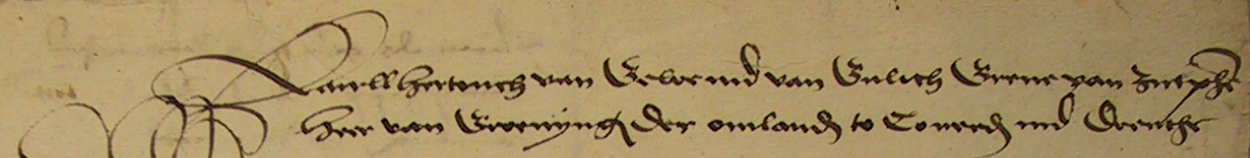 Kairll hertouch van Gelre ind van Gulich Greue van Zutphe
Heer van Groenyng der omland to Couerd ind Drenthe